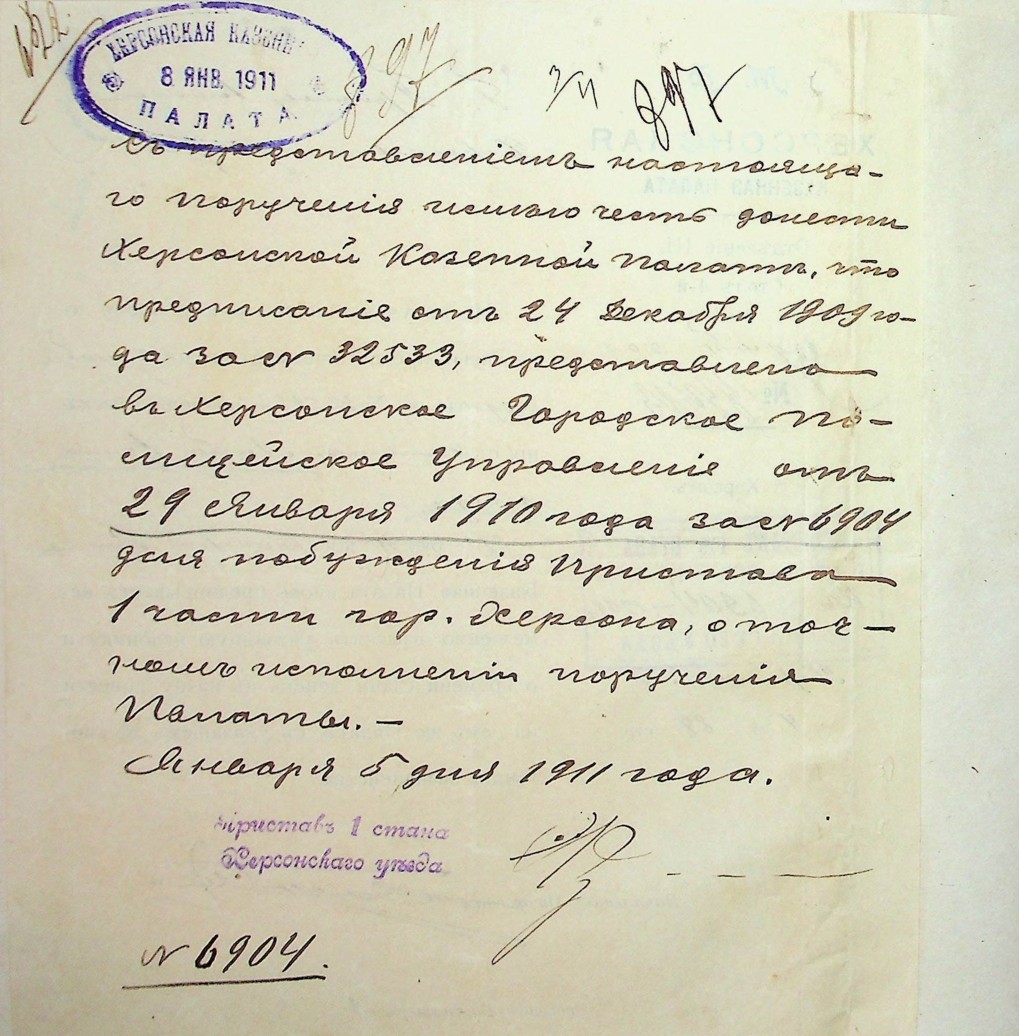 ХЕРСОНСКАЯ КАЗЕН
8 ЯНВ. 1911
ПАЛАТА
897
897
Съ представленіемъ настояща-
го порученія имѣю честь донести
Херсонской Казенной Палатѣ, что
предписаніе отъ 24 Декабря 1909 го-
да за № 32533, представлено
въ Херсонское Городское По-
лицейское Управленіе отъ
29 Января 1910 года за № 6904
для побужденія Пристава
1 части гор. Херсона, о точ-
номъ исполненіи порученія
Палаты. –
Января 5 дня 1911 года.
Приставъ 1 стана
Херсонскаго уѣзда
№ 6904.